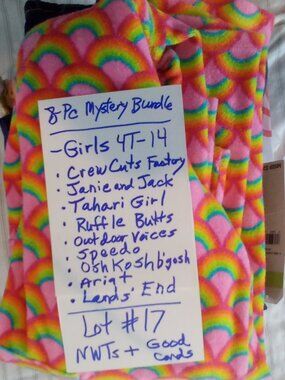 8 Pc Mystery Bundle
- Girls 4T-14
• Crew Cuts Factory
• Janie and Jack
• Tahari Girl
• Ruffle Butts
• Outdoor Voices
• Speedo
• OshKoshb'gosh
• Ariat
• Lands' End
Lot #17
NWTs + Good
Conds